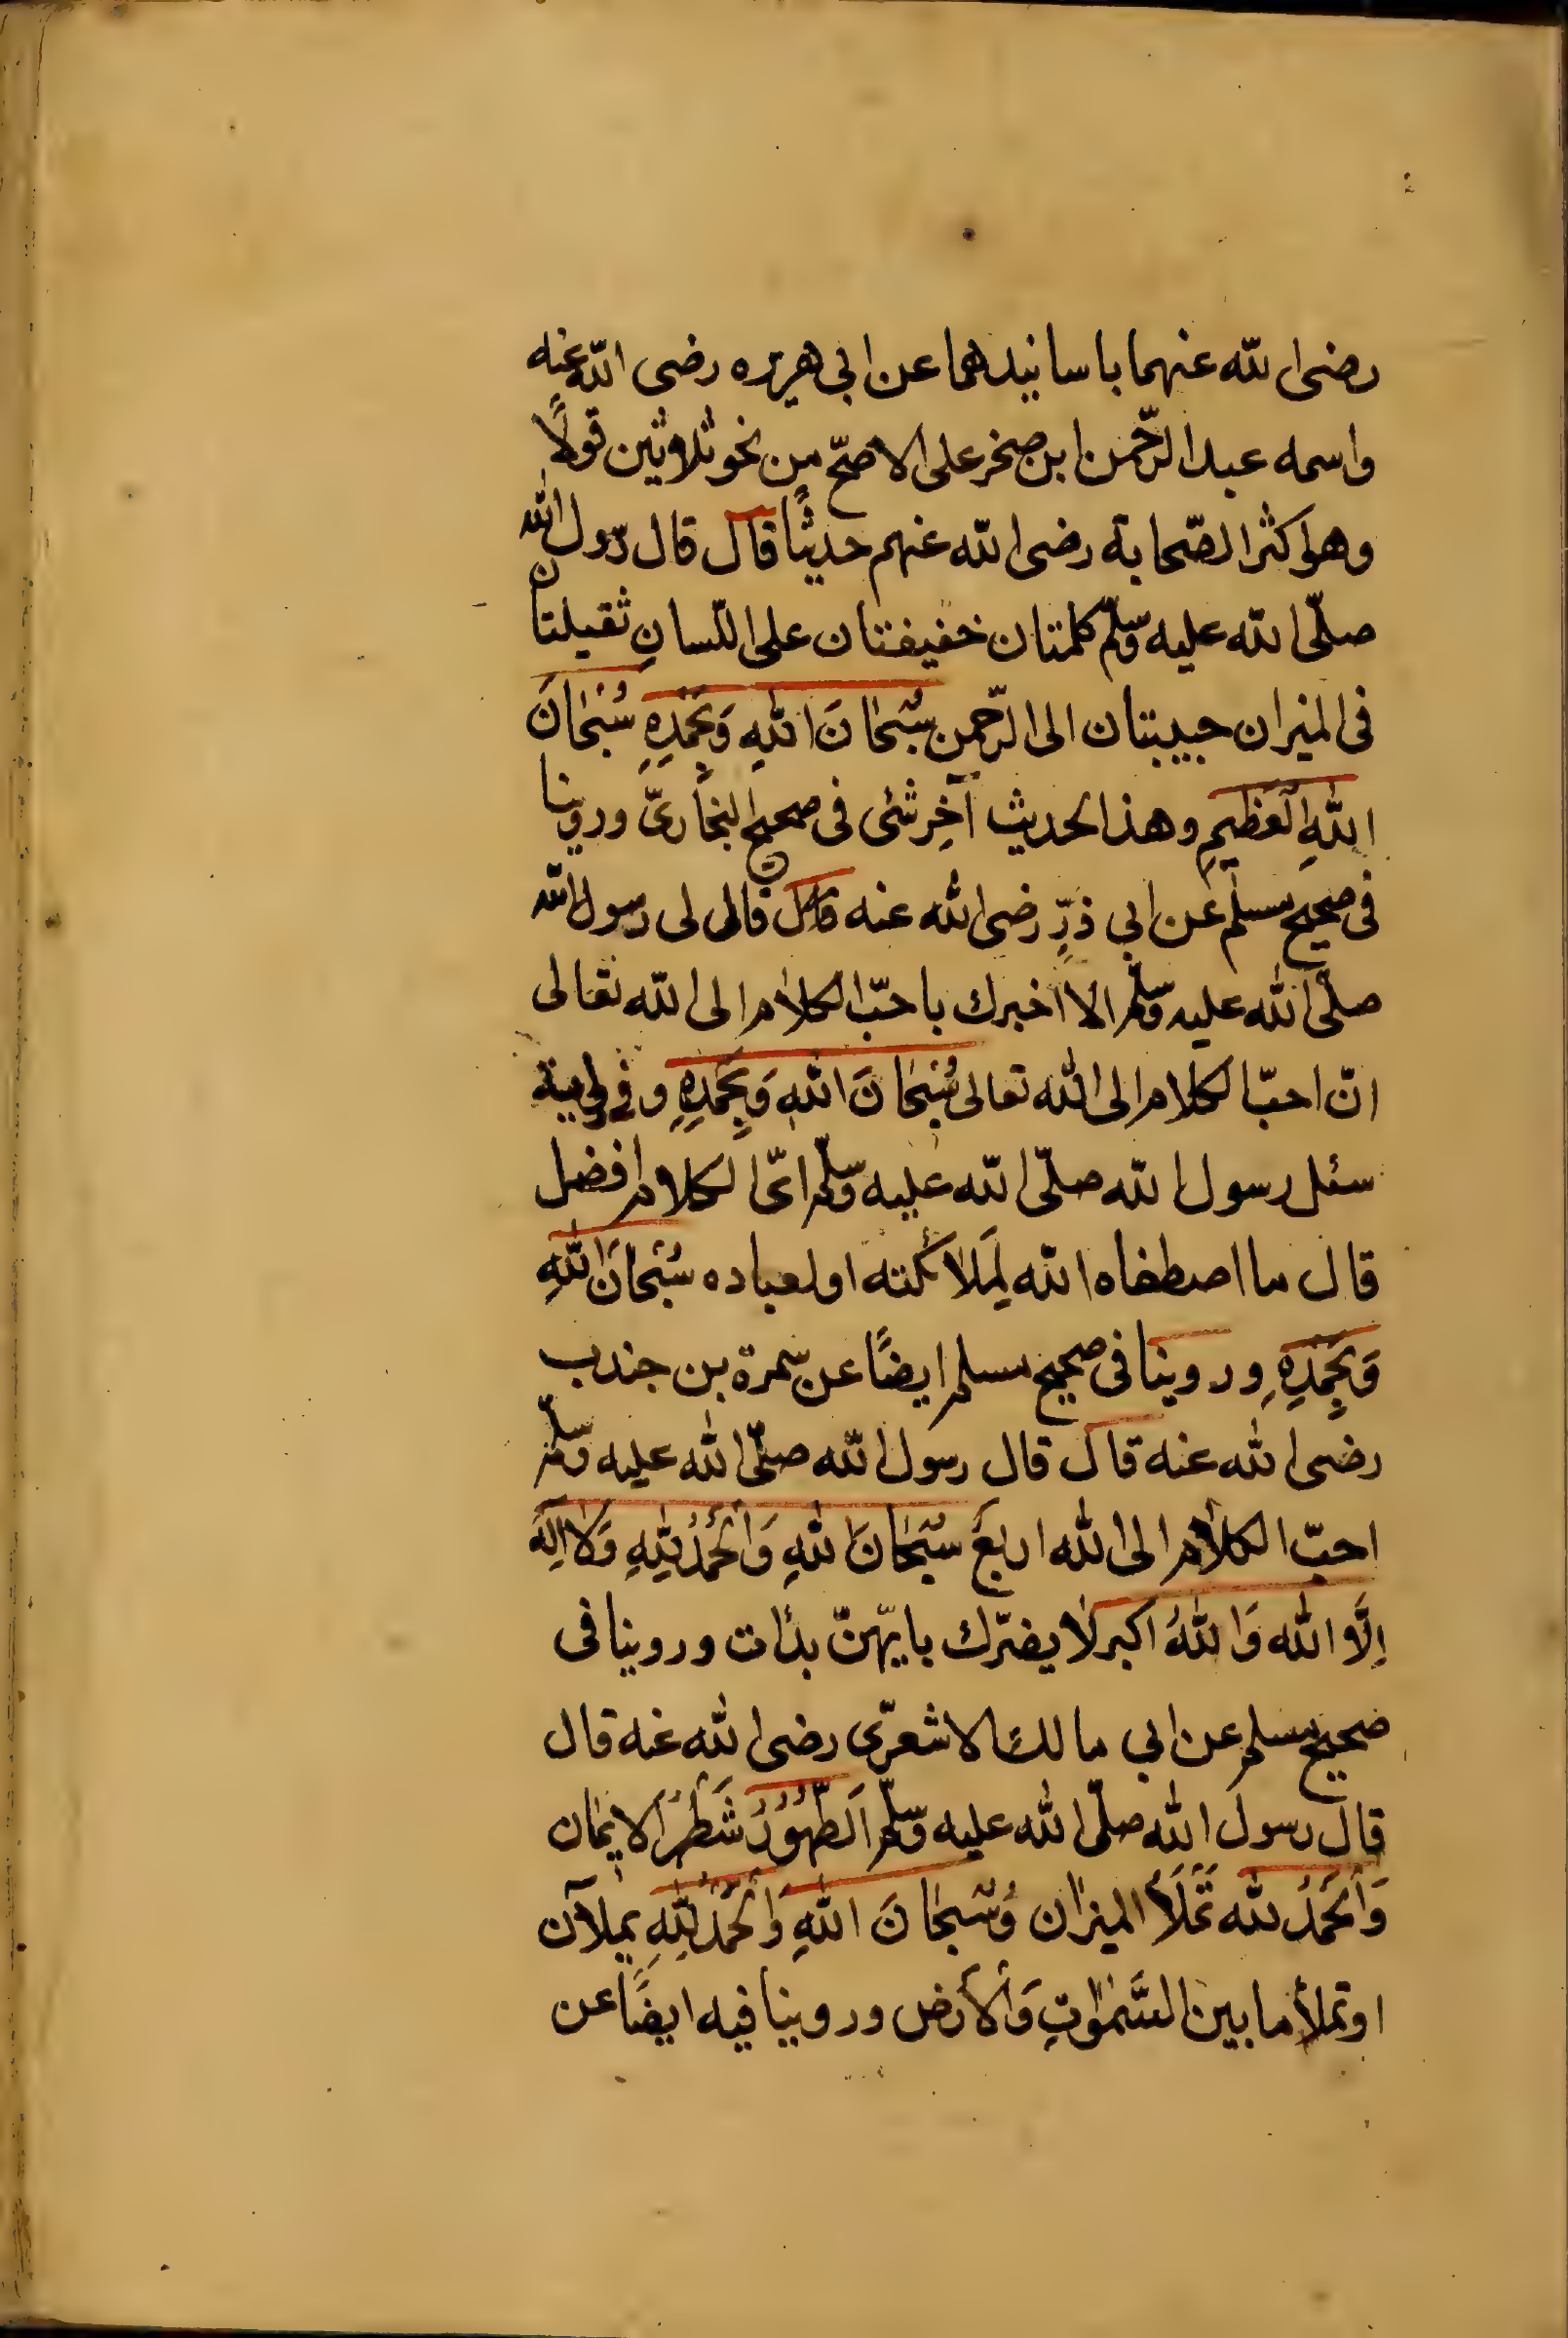 رضى الله عنهما باسانيدهما عن ابى هريره رضى الله عنه
واسمه عبد الرّحمن ابن صخر على الاصحّ من نحو ثلاثين قولًا
وهو اكثر الصّحابة رضى الله عنهم حديثًا قال قال رسول الله
صلّى الله عليه وسلّم كلمتان خفيفتان على اللّسانِ ثقيلتان
فى الميزان حبيبتان الى الرّحمن سُبْحَانَ اللهِ وَبِحَمْدِهِ سُبْحَانَ
اللهِ الْعَظِيمِ وهذا الحديث آخِر شئى فى صحيح البخارىّ وروينا
فى صحيح مسلم عن ابي ذرٍّ رضى الله عنه قال قال لى رسول الله
صلّى الله عليه وسلّم الا اخبرك باحبّ الكلام الى الله تعالى
انّ احبّ الكلام الى الله تعالى سُبْحَانَ اللهِ وَبِحَمْدِهِ وفى رواية
سئل رسول الله صلّى الله عليه وسلّم اىّ الكلام افضل
قال ما اصطفاه الله لِمَلائكته او لعباده سُبْحَانَ اللهِ
وَبِحَمْدِهِ وروينا فى صحيح مسلم ايضًا عن سمرة بن جندب
رضى الله عنه قال قال رسول الله صلّى الله عليه وسلّم
احبّ الكلام الى الله اربعَ سُبْحَانَ اللهِ وَالْحَمْدُ لِلّهِ وَلا اِلهَ
اِلَّا الله وَاللهُ اكبر لا يضرّك بايّهنّ بدات وروينا فى
صحيح مسلم عن ابي مالك الاشعرّى رضى الله عنه قال
قال رسول الله صلّى الله عليه وسلّم اَلطّهُوْرُ شَطْرُ الايمان
وَالْحَمْدُ لله تَمْلَأُ الميزان وَسُبْحَانَ اللهِ وَالْحَمْدُ لِلّهِ يملآن
او تملأ ما بين السَّموٰتِ وَالْأرض وروينا فيه ايضًا عن